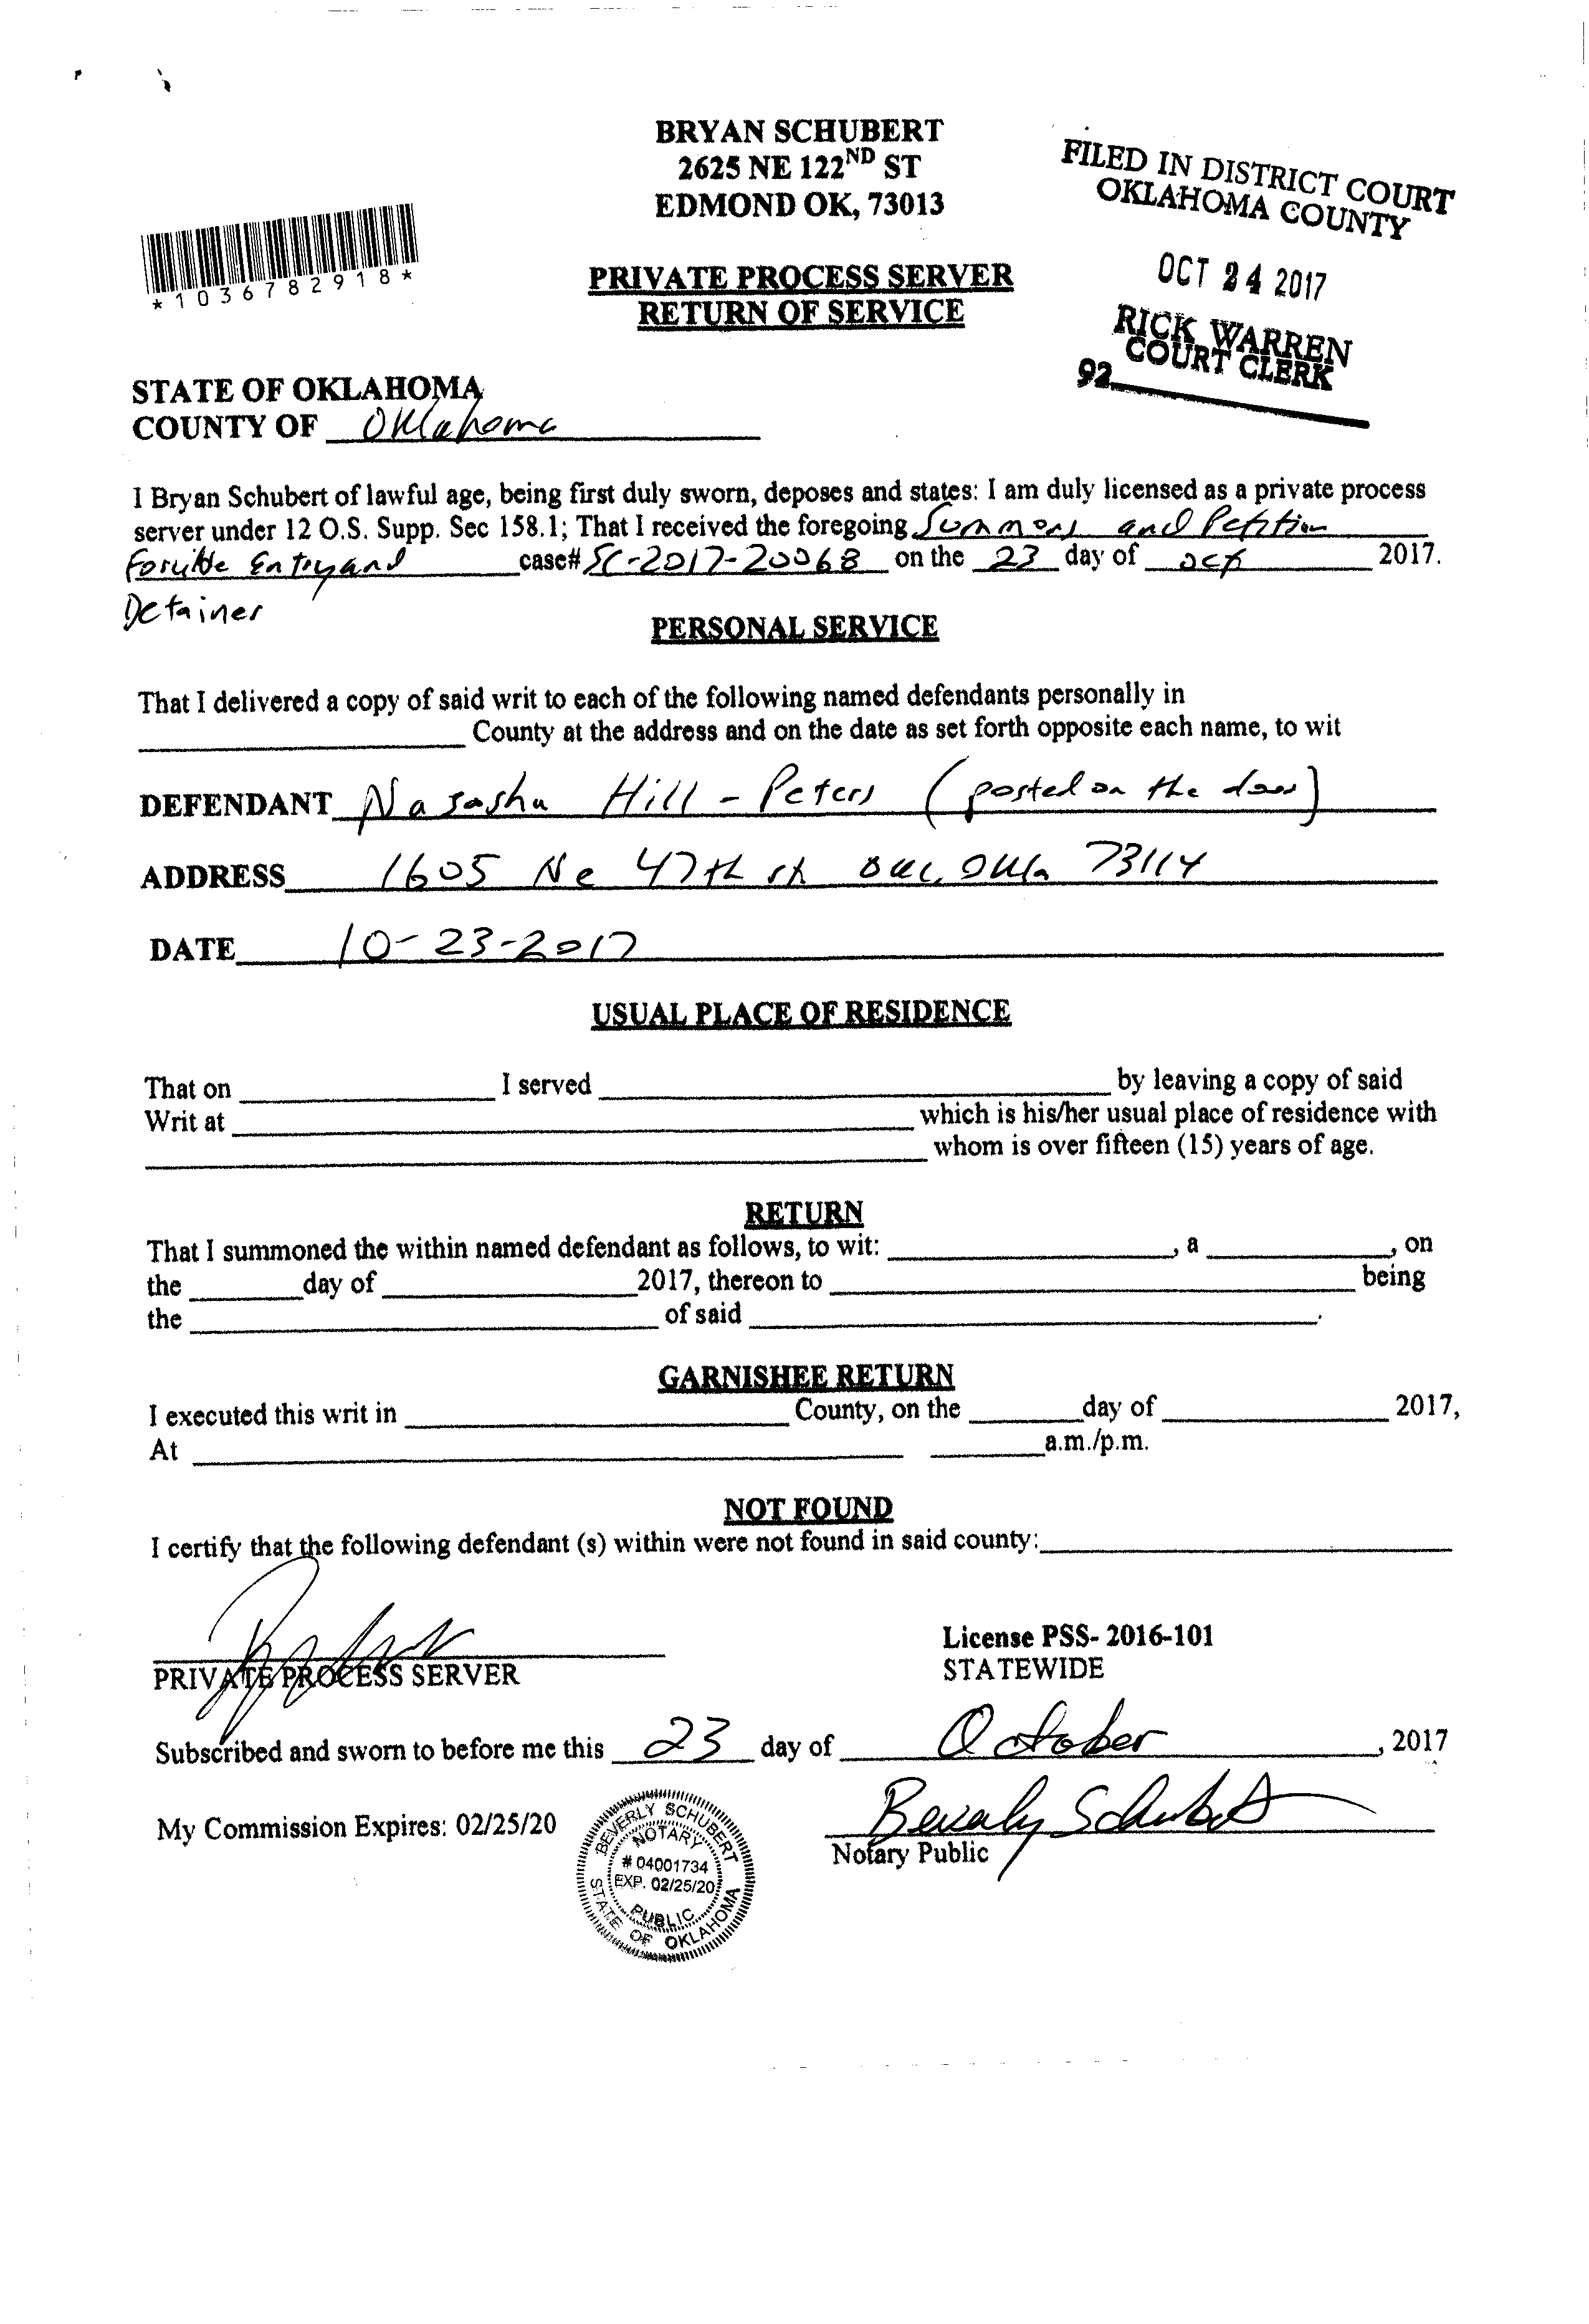 BRYAN SCHUBERT
2625 NE 122ND ST
EDMOND OK, 73013
FILED IN DISTRICT COURT
OKLAHOMA COUNTY
OCT 24 2017
RICK WARREN
COURT CLERK
92
*1036782918*
PRIVATE PROCESS SERVER
RETURN OF SERVICE
STATE OF OKLAHOMA
COUNTY OF Oklahoma
I Bryan Schubert of lawful age, being first duly sworn, deposes and states: I am duly licensed as a private process
server under 12 O.S. Supp. Sec 158.1; That I received the foregoing Summons and Petition
Entry and case# SC-2017-20068 on the 23 day of oct 2017.
Detainer
PERSONAL SERVICE
That I delivered a copy of said writ to each of the following named defendants personally in
County at the address and on the date as set forth opposite each name, to wit
DEFENDANT Nasasha Hill-Peters (posted on the door)
ADDRESS 1605 Ne 47th st OKC, Okla 73114
DATE 10-23-2017
USUAL PLACE OF RESIDENCE
That on I served by leaving a copy of said
Writ at which is his/her usual place of residence with
whom is over fifteen (15) years of age.
RETURN
That I summoned the within named defendant as follows, to wit: , a , on
the day of 2017, thereon to being
the of said .
GARNISHEE RETURN
I executed this writ in County, on the day of 2017,
At a.m./p.m.
NOT FOUND
I certify that the following defendant (s) within were not found in said county:
PRIVATE PROCESS SERVER
License PSS- 2016-101
STATEWIDE
Subscribed and sworn to before me this 23 day of October , 2017
My Commission Expires: 02/25/20
BEVERLY SCHUBERT
NOTARY
# 04001734
EXP. 02/25/20
PUBLIC
STATE OF OKLAHOMA
Beverly Schubert
Notary Public